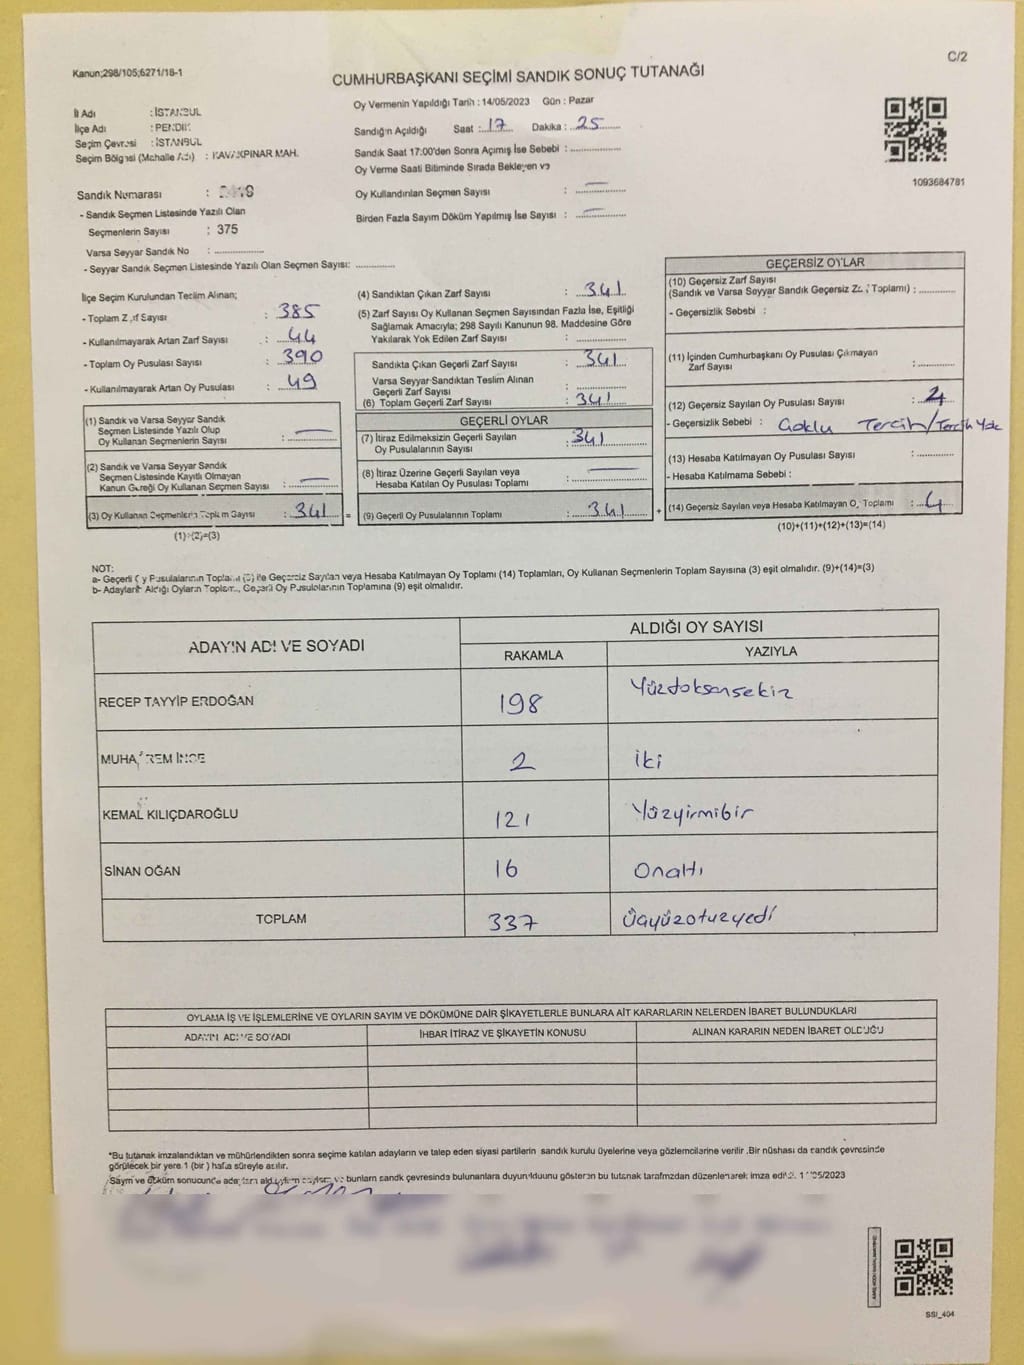 C/2
Kanun;298/105;6271/18-1
CUMHURBAŞKANI SEÇİMİ SANDIK SONUÇ TUTANAĞI
İl Adı : İSTANBUL
İlçe Adı : PENDİK
Seçim Çevresi : İSTANBUL
Seçim Bölgesi (Mahalle Adı) : KAVAKPINAR MAH.
Sandık Numarası :
- Sandık Seçmen Listesinde Yazılı Olan
Seçmenlerin Sayısı : 375
Varsa Seyyar Sandık No : ..............
- Seyyar Sandık Seçmen Listesinde Yazılı Olan Seçmen Sayısı: ............
Oy Vermenin Yapıldığı Tarih : 14/05/2023 Gün : Pazar
Sandığın Açıldığı Saat : 17 Dakika : 25
Sandık Saat 17:00'den Sonra Açımış İse Sebebi : ..............
Oy Verme Saati Bitiminde Sırada Bekleyen ve
Oy Kullandırılan Seçmen Sayısı : —
Birden Fazla Sayım Döküm Yapılmış İse Sayısı : —
1093684781
İlçe Seçim Kurulundan Teslim Alınan;
- Toplam Zarf Sayısı : 385
- Kullanılmayarak Artan Zarf Sayısı : 44
- Toplam Oy Pusulası Sayısı : 390
- Kullanılmayarak Artan Oy Pusulası : 49
(1) Sandık ve Varsa Seyyar Sandık
Seçmen Listesinde Yazılı Olup
Oy Kullanan Seçmenlerin Sayısı : —
(2) Sandık ve Varsa Seyyar Sandık
Seçmen Listesinde Kayıtlı Olmayan
Kanun Gereği Oy Kullanan Seçmen Sayısı : —
(3) Oy Kullanan Seçmenlerin Toplam Sayısı : 341 =
(1)+(2)=(3)
(4) Sandıktan Çıkan Zarf Sayısı : 341
(5) Zarf Sayısı Oy Kullanan Seçmen Sayısından Fazla İse, Eşitliği
Sağlamak Amacıyla; 298 Sayılı Kanunun 98. Maddesine Göre
Yakılarak Yok Edilen Zarf Sayısı : ..............
Sandıkta Çıkan Geçerli Zarf Sayısı : 341
Varsa Seyyar Sandıktan Teslim Alınan
Geçerli Zarf Sayısı : ..............
(6) Toplam Geçerli Zarf Sayısı : 341
GEÇERLİ OYLAR
(7) İtiraz Edilmeksizin Geçerli Sayılan
Oy Pusulalarının Sayısı : 341
(8) İtiraz Üzerine Geçerli Sayılan veya
Hesaba Katılan Oy Pusulası Toplamı : —
(9) Geçerli Oy Pusulalarının Toplamı : 341 +
GEÇERSİZ OYLAR
(10) Geçersiz Zarf Sayısı
(Sandık ve Varsa Seyyar Sandık Geçersiz Zarf Toplamı) : ............
- Geçersizlik Sebebi :
(11) İçinden Cumhurbaşkanı Oy Pusulası Çıkmayan
Zarf Sayısı : ............
(12) Geçersiz Sayılan Oy Pusulası Sayısı : 4
- Geçersizlik Sebebi : Çoklu Tercih/Tercih Yok
(13) Hesaba Katılmayan Oy Pusulası Sayısı : ............
- Hesaba Katılmama Sebebi :
(14) Geçersiz Sayılan veya Hesaba Katılmayan Oy Toplamı : 4
(10)+(11)+(12)+(13)=(14)
NOT:
a- Geçerli Oy Pusulalarının Toplamı (9) ile Geçersiz Sayılan veya Hesaba Katılmayan Oy Toplamı (14) Toplamları, Oy Kullanan Seçmenlerin Toplam Sayısına (3) eşit olmalıdır. (9)+(14)=(3)
b- Adayların Aldığı Oyların Toplamı, Geçerli Oy Pusulalarının Toplamına (9) eşit olmalıdır.
ADAYIN ADI VE SOYADI ALDIĞI OY SAYISI
RAKAMLA YAZIYLA
RECEP TAYYİP ERDOĞAN 198 Yüzdoksansekiz
MUHARREM İNCE 2 iki
KEMAL KILIÇDAROĞLU 121 Yüzyirmibir
SİNAN OĞAN 16 Onaltı
TOPLAM 337 Üçyüzotuzyedi
OYLAMA İŞ VE İŞLEMLERİNE VE OYLARIN SAYIM VE DÖKÜMÜNE DAİR ŞİKAYETLERLE BUNLARA AİT KARARLARIN NELERDEN İBARET BULUNDUKLARI
ADAYIN ADI VE SOYADI İHBAR İTİRAZ VE ŞİKAYETİN KONUSU ALINAN KARARIN NEDEN İBARET OLDUĞU
*Bu tutanak imzalandıktan ve mühürlendikten sonra seçime katılan adayların ve talep eden siyasi partilerin sandık kurulu üyelerine veya gözlemcilerine verilir .Bir nüshası da sandık çevresinde
görülecek bir yere 1 (bir ) hafta süreyle asılır.
Sayım ve döküm sonucunda adayların aldıkları oyların sayıları ve bunların sandık çevresinde bulunanlara duyurulduğunu gösteren bu tutanak tarafımızdan düzenlenerek imza edildi. 1 /05/2023
SSI_404